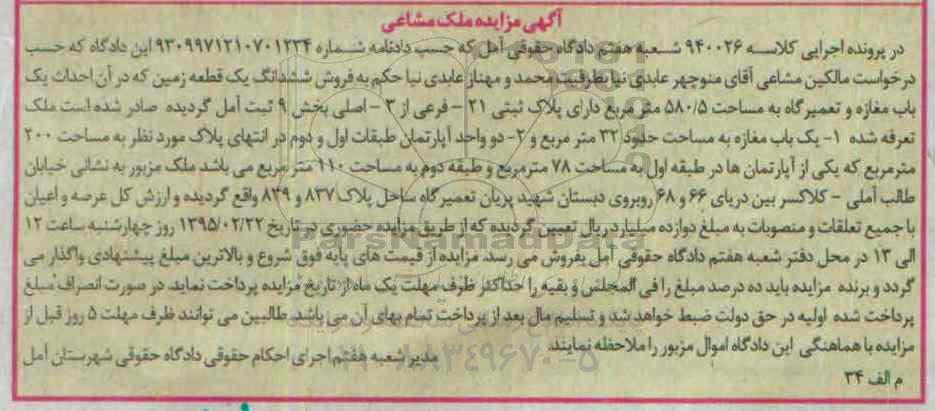 آگهی مزایده ملک مشاعی
در پرونده اجرایی کلاسه ۹۴۰۰۲۶ شعبه هفتم دادگاه حقوقی آمل که حسب دادنامه شماره ۹۳۰۹۹۷۱۲۱۰۷۰۱۲۳۴ این دادگاه که حسب
درخواست مالکین مشاعی آقای منوچهر عابدی نیا بطرفیت محمد و مهناز عابدی نیا حکم به فروش ششدانگ یک قطعه زمین که در آن احداث یک
باب مغازه و تعمیرگاه به مساحت ۵۸۰/۵ متر مربع دارای پلاک ثبتی ۲۱ - فرعی از ۳ - اصلی بخش ۹ ثبت آمل گردیده صادر شده است ملک
تعرفه شده ۱- یک باب مغازه به مساحت حدود ۳۲ متر مربع و ۲- دو واحد آپارتمان طبقات اول و دوم در انتهای پلاک مورد نظر به مساحت ۲۰۰
مترمربع که یکی از آپارتمان ها در طبقه اول به مساحت ۷۸ مترمربع و طبقه دوم به مساحت ۱۱۰ متر مربع می باشد ملک مزبور به نشانی خیابان
طالب آملی - کلاکسر بین دریای ۶۶ و ۶۸ روبروی دبستان شهید پریان تعمیرگاه ساحل پلاک ۸۳۷ و ۸۳۹ واقع گردیده و ارزش کل عرصه و اعیان
با جمیع تعلقات و منصوبات به مبلغ دوازده میلیارد ریال تعیین گردیده که از طریق مزایده حضوری در تاریخ ۱۳۹۵/۰۲/۲۲ روز چهارشنبه ساعت ۱۲
الی ۱۳ در محل دفتر شعبه هفتم دادگاه حقوقی آمل بفروش می رسد. مزایده از قیمت های پایه فوق شروع و بالاترین مبلغ پیشنهادی واگذار می
گردد و برنده مزایده باید ده درصد مبلغ را فی المجلس و بقیه را حداکثر ظرف مهلت یک ماه از تاریخ مزایده پرداخت نماید. در صورت انصراف مبلغ
پرداخت شده اولیه در حق دولت ضبط خواهد شد و تسلیم مال بعد از پرداخت تمام بهای آن می باشد. طالبین می توانند ظرف مهلت ۵ روز قبل از
مزایده با هماهنگی این دادگاه اموال مزبور را ملاحظه نمایند.
مدیر شعبه هفتم اجرای احکام حقوقی دادگاه حقوقی شهرستان آمل
م الف ۳۴
ParsNamadData
۰۲۱-۸۸۳۴۹۶۷۰-۵